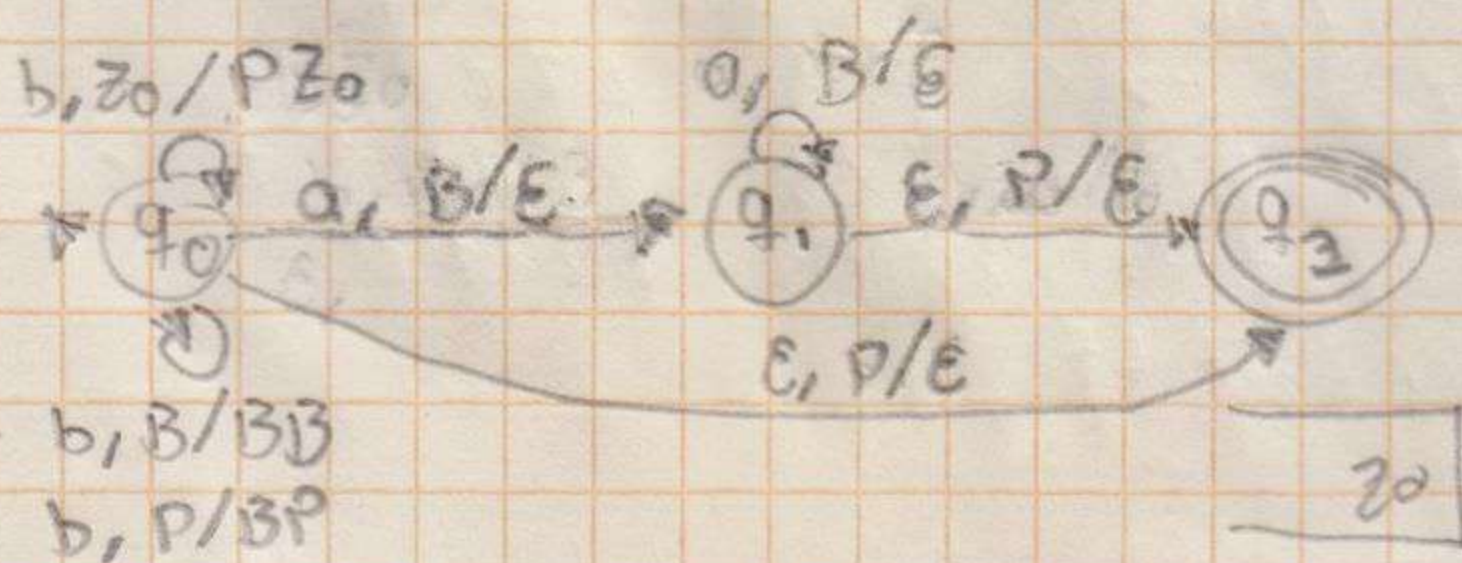 b, z0 / PZ0
a, B/ε
q0
a, B/ε
q1
ε, P/ε
q2
ε, P/ε
b, B/BB
b, P/BP
z0